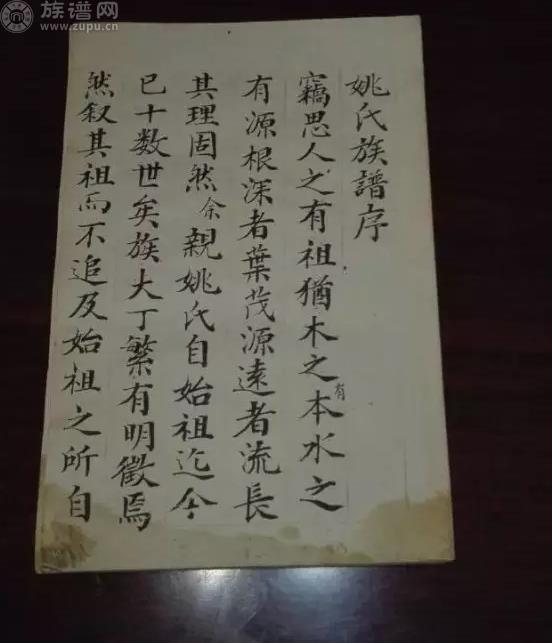 族谱网
www.zupu.cn
姚氏族譜序
竊思人之有祖猶木之有本水之
有源根深者葉茂源遠者流長
其理固然余親姚氏自始祖迄今
已十数世矣族大丁繁有明徵焉
然叙其祖而不追及始祖之所自